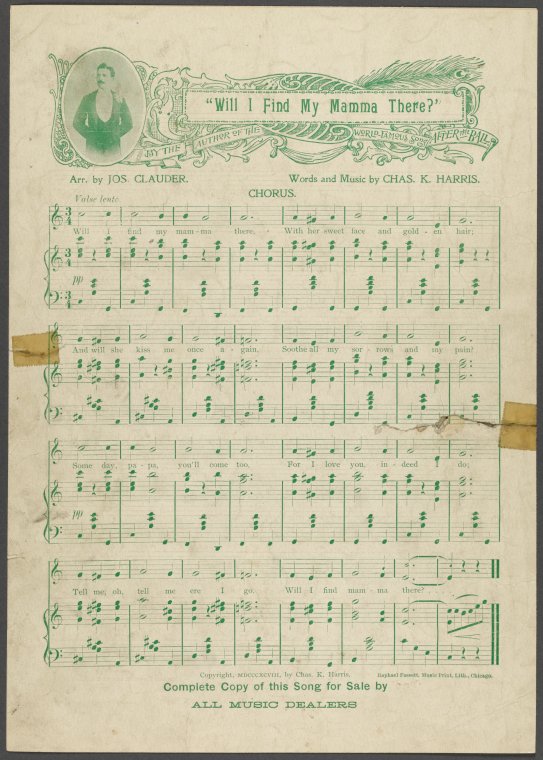 "Will I Find My Mamma There?"
BY THE AUTHOR OF THE WORLD FAMOUS SONG AFTER THE BALL
Arr. by JOS. CLAUDER. Words and Music by CHAS. K. HARRIS.
CHORUS.
Valse lento
Will I find my mam-ma there, With her sweet face and gold-en hair;
pp
And will she kiss me once a-gain, Soothe all my sor-rows and my pain?
Some day, pa-pa, you'll come too, For I love you, in-deed I do;
pp
Tell me, oh, tell me ere I go. Will I find mam-ma there?
Copyright, MDCCCXCVIII, by Chas. K. Harris. Raphael Fassett, Music Print, Lith., Chicago.
Complete Copy of this Song for Sale by
ALL MUSIC DEALERS